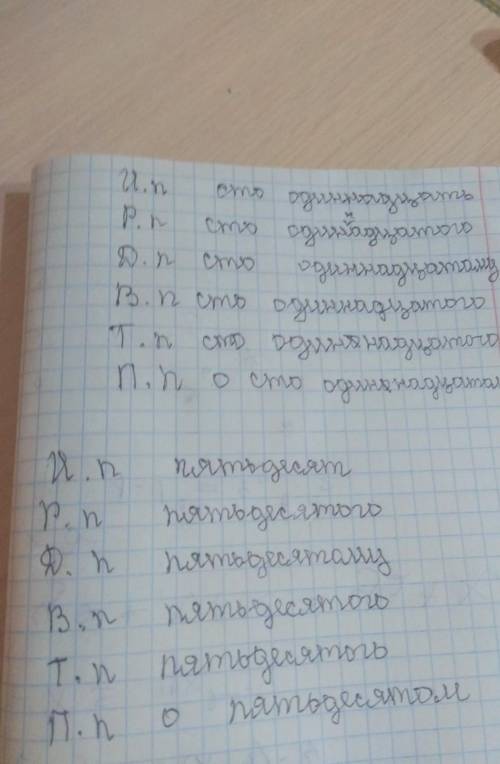 И.п сто одиннадцать
Р.п сто одиннадцатого
Д.п сто одиннадцатому
В.п сто одиннадцатого
Т.п сто одиннадцатого
П.п о сто одиннадцатом
И.п пятьдесят
Р.п пятьдесятого
Д.п пятьдесятому
В.п пятьдесятого
Т.п пятьдесятого
П.п о пятьдесятом